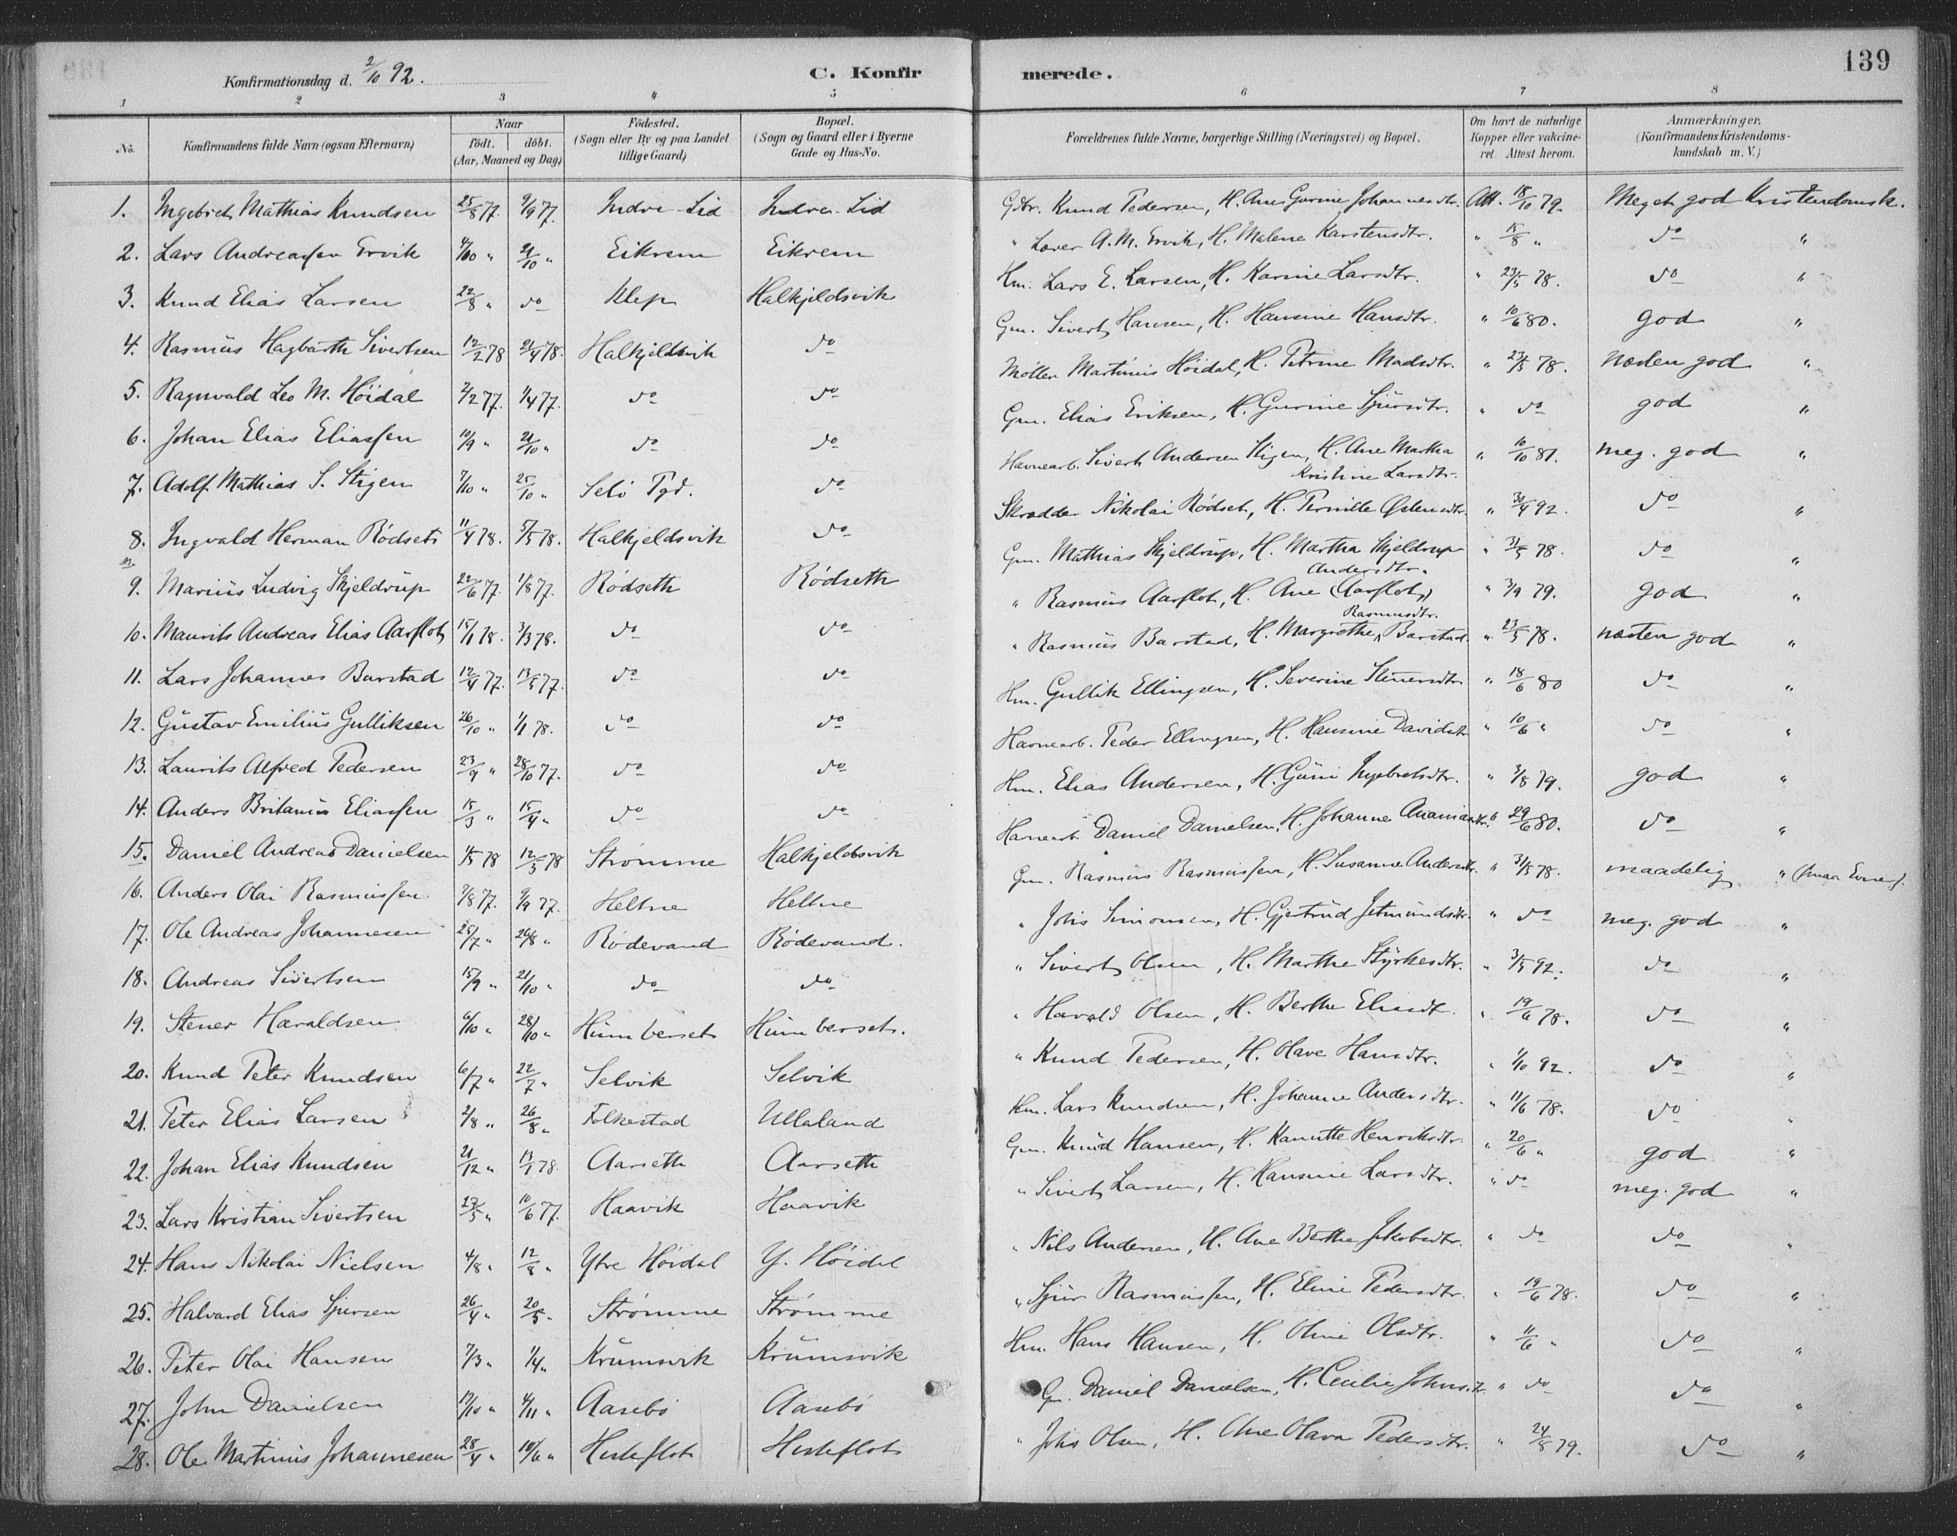 139
Konfirmationsdag d. 2/10 92.
C. Konfirmerede.
1 2 3 4 5 6 7 8
No. Konfirmandens fulde Navn (ogsaa Efternavn) Naar født. døbt. (Aar, Maaned og Dag) Fødested. (Sogn eller By og paa Landet tillige Gaard) Bopæl. (Sogn og Gaard eller i Byerne Gade og Hus-No. Forældrenes fulde Navne, borgerlige Stilling (Næringsvei) og Bopæl. Om havt de naturlige Kopper eller vakcineret. Attest herom. Anmærkninger. (Konfirmandens Kristendomskundskab m. V.)
1. Ingebret Mathias Knudsen 25/8 77. 9/9 77. Indre-Lid Indre-Lid Gbr. Knud Pedersen, H. Ane Gurine Johannesdtr. Att. 18/10 79. Meget god Kristendomsk.
2. Lars Andreassen Ervik 4/10 " 21/10 " Eikrem Eikrem " Lærer A. M. Ervik, H. Malene Karstensdtr. " 15/8 " do "
3. Knud Elias Larsen 22/8 " do Klep Halkjeldsvik Hm. Lars E. Larsen, H. Karine Larsdtr. " 23/5 78. do "
4. Rasmus Hagbarth Sivertsen 12/2 78 21/4 78. Halkjeldsvik do Gm. Sivert Hansen, H. Hansine Hansdtr. " 10/6 80. god "
5. Ragnvald Leo M. Höidal 2/2 77. 1/4 77. do do Møller Martinus Höidal, H. Petrine Madsdtr. " 23/5 78. næsten god "
6. Johan Elias Eliassen 10/9 " 21/10 " do do Gm. Elias Eriksen, H. Gurine Sjursdtr. " do god "
7. Adolf Mathias S. Stigen 7/10 " 25/10 " Selö Pgd. do Havnearb. Sivert Andersen Stigen, H. Ane Martha Kristine Larsdtr. " 10/10 81. meg. god "
8. Ingvald Herman Rödset 11/4 78. 5/5 78. Halkjeldsvik do Skrædder Nikolai Rödset, H. Pernille Østensdtr. " 30/4 92. do "
9. Marius Ludvig Skjeldrup 22/6 77. 1/8 77. Rödseth Rödseth Gm. Mathias Skjeldrup, H. Martha Skjeldrup Andersdtr. " 31/5 78. do "
10. Maurits Andreas Elias Aarflot 15/1 78. 3/3 78. do do " Rasmus Aarflot, H. Ane (Aarflot) " 3/9 79. god "
11. Lars Johannes Barstad 12/4 77. 13/5 77. do do " Rasmus Barstad, H. Margrethe Rasmusdtr. Barstad " 23/5 78. næsten god "
12. Gustav Emilius Gulliksen 26/10 " 1/1 78. do do Hm. Gullik Ellingsen, H. Severine Stenersdtr " 18/6 80 do "
13. Laurits Alfred Pedersen 23/9 " 28/10 77. do do Havnearb. Peder Ellingsen, H. Hansine Davidsdtr " 10/6 " do "
14. Anders Britanius Eliassen 15/3 " 15/4 " do do Hm. Elias Andersen, H. Guri Ingebretsdtr. " 3/8 79. god "
15. Daniel Andreas Danielsen 4/5 78 12/5 78 Strømme Halkjeldsvik Havnearb. Daniel Danielsen, H. Johanne Ananiasdtr. " 29/6 80. do "
16. Anders Olai Rasmussen 9/8 77. 9/9 77. Heltne Heltne Gm. Rasmus Rasmussen, H. Susanne Andersdtr. " 31/5 78. maadelig " (smaa Evner).
17. Ole Andreas Johannesen 25/7 " 26/8 " Rödevand Rödevand. " Johs Simonsen, H. Gjertrud Jetmundsdtr. " do meg. god "
18. Andreas Sivertsen 15/9 " 21/10 " do do " Sivert Olsen, H. Marthe Styrkesdtr. " 3/5 92. do "
19. Stener Haraldsen 6/10 " 28/10 " Humberset Humberset. " Harald Olsen, H. Berthe Eliasdtr. " 19/6 78. do "
20. Knud Peter Knudsen 6/7 " 22/7 " Selvik Selvik " Knud Pedersen, H. Olave Hansdtr. " 1/10 92. do "
21. Peter Elias Larsen 2/8 " 26/8 " Folkestad Ullaland Hm. Lars Knudsen, H. Johanne Andersdtr. " 11/6 78. do "
22. Johan Elias Knudsen 21/12 " 13/1 78. Aarseth Aarseth Gm. Knud Hansen, H. Kanutte Henriksdtr. " 20/6 " god "
23. Lars Kristian Sivertsen 23/5 " 10/6 77. Haavik Haavik " Sivert Larsen, H. Hansine Larsdtr. " do meg. god "
24. Hans Nikolai Nielsen 4/8 " 12/8 " Ytre Höidal Y. Höidal " Nils Andersen, H. Ane Berthe Jakobsdtr. " do do "
25. Halvard Elias Sjursen 26/4 " 20/5 " Strömme Strömme " Sjur Rasmussen, H. Eline Pedersdtr. " 19/6 78. do "
26. Peter Olai Hansen 7/3 " 1/4 " Krumsvik Krumsvik Hm. Hans Hansen, H. Oline Olsdtr. " 11/6 " do "
27. John Danielsen 12/10 " 4/11 " Aasebö Aasebö Gm. Daniel Danielsen, H. Cecilie Johnsdtr. " do do "
28. Ole Martinus Johannesen 28/4 " 10/6 " Hesteflot Hesteflot " Johs Olsen, H. Ane Olava Pedersdtr. " 24/8 79. do "